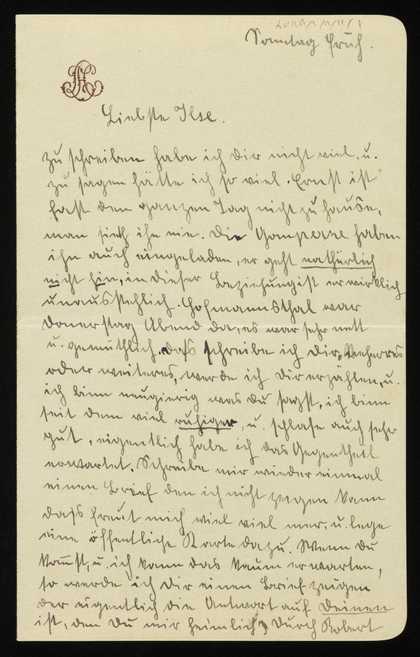 Sonntag Früh.
Liebste Ilse.
zu schreiben habe ich dir nicht viel. u.
zu sagen hätte ich so viel. Ernst ist
fast den ganzen Tag nicht zu hause,
man sieht ihn nie. Die haben
ihn auch eingeladen, er geht natürlich
nicht hin, in dieser Beziehung ist er wirklich
unausstehlich. Hofmannsthal war
Donerstag Abend da, es war sehr nett
u. gemüthlich. daſs schreibe ich dir,
oder weiteres, werde ich dir erzählen, u.
ich binn neugierig was du sagst, ich binn
seit dem viel ruhiger, u. schlafe auch sehr
gut, eigentlich habe ich das Gegentheil
erwartet. Schreibe mir wieder einmal
einen Brief den ich nicht zeigen kann
daſs freut mich viel viel mer, u. lege
eine öffentliche Karte dazu. Wenn du
kommst, u. ich kann das kaum erwarten,
so werde ich dir einen Brief zeigen
der eigentlich die Antwort auf Deinen
ist, den Du mir heimlich durch Robert